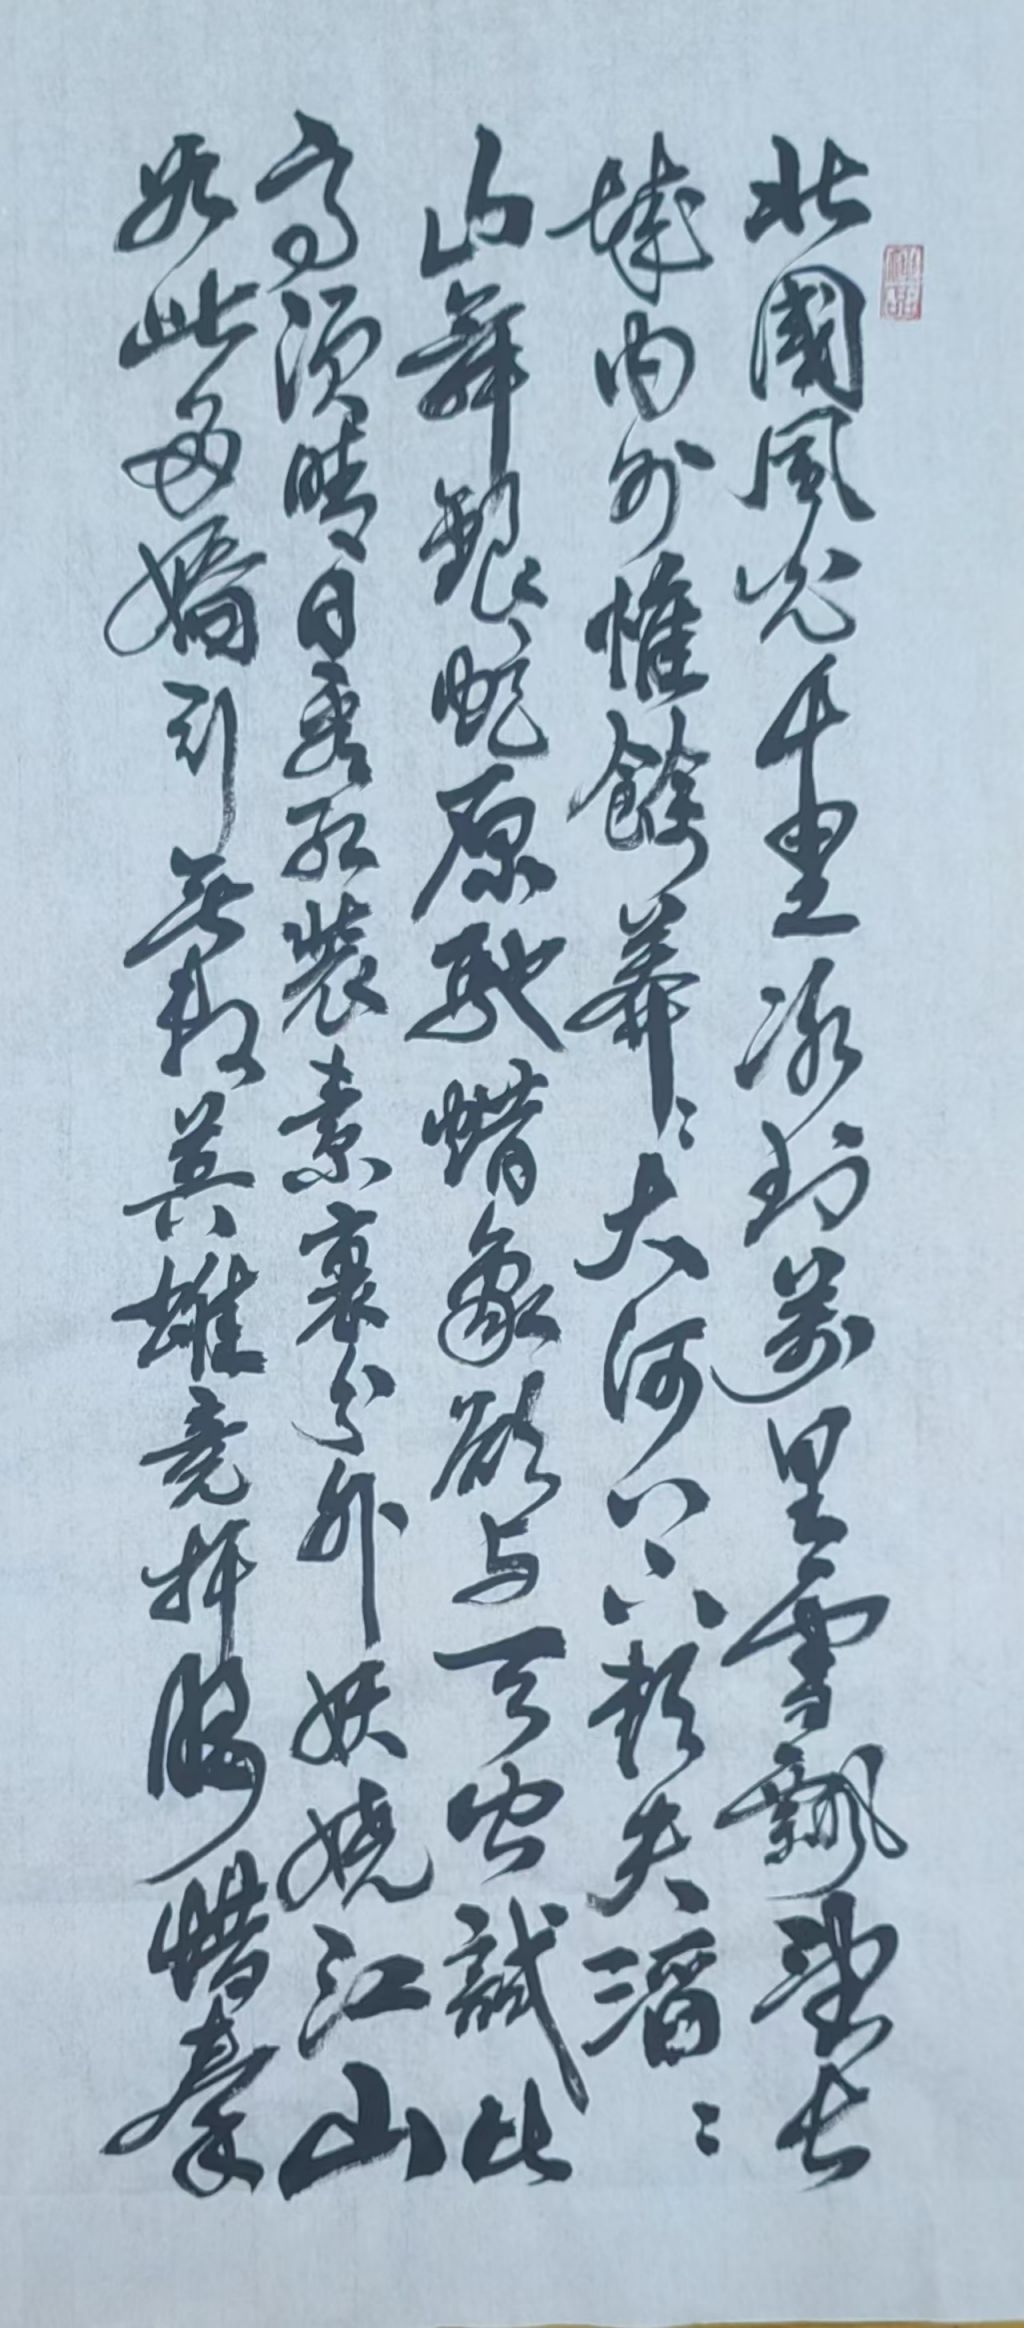 北國風光千里冰封萬里雪飄望長
城内外惟餘莽〻大河上下頓失滔〻
山舞銀蛇原馳蜡象欲与天公試比
高須晴日看紅裝素裹分外妖嬈江山
如此多嬌引無數英雄竞折腰惜秦